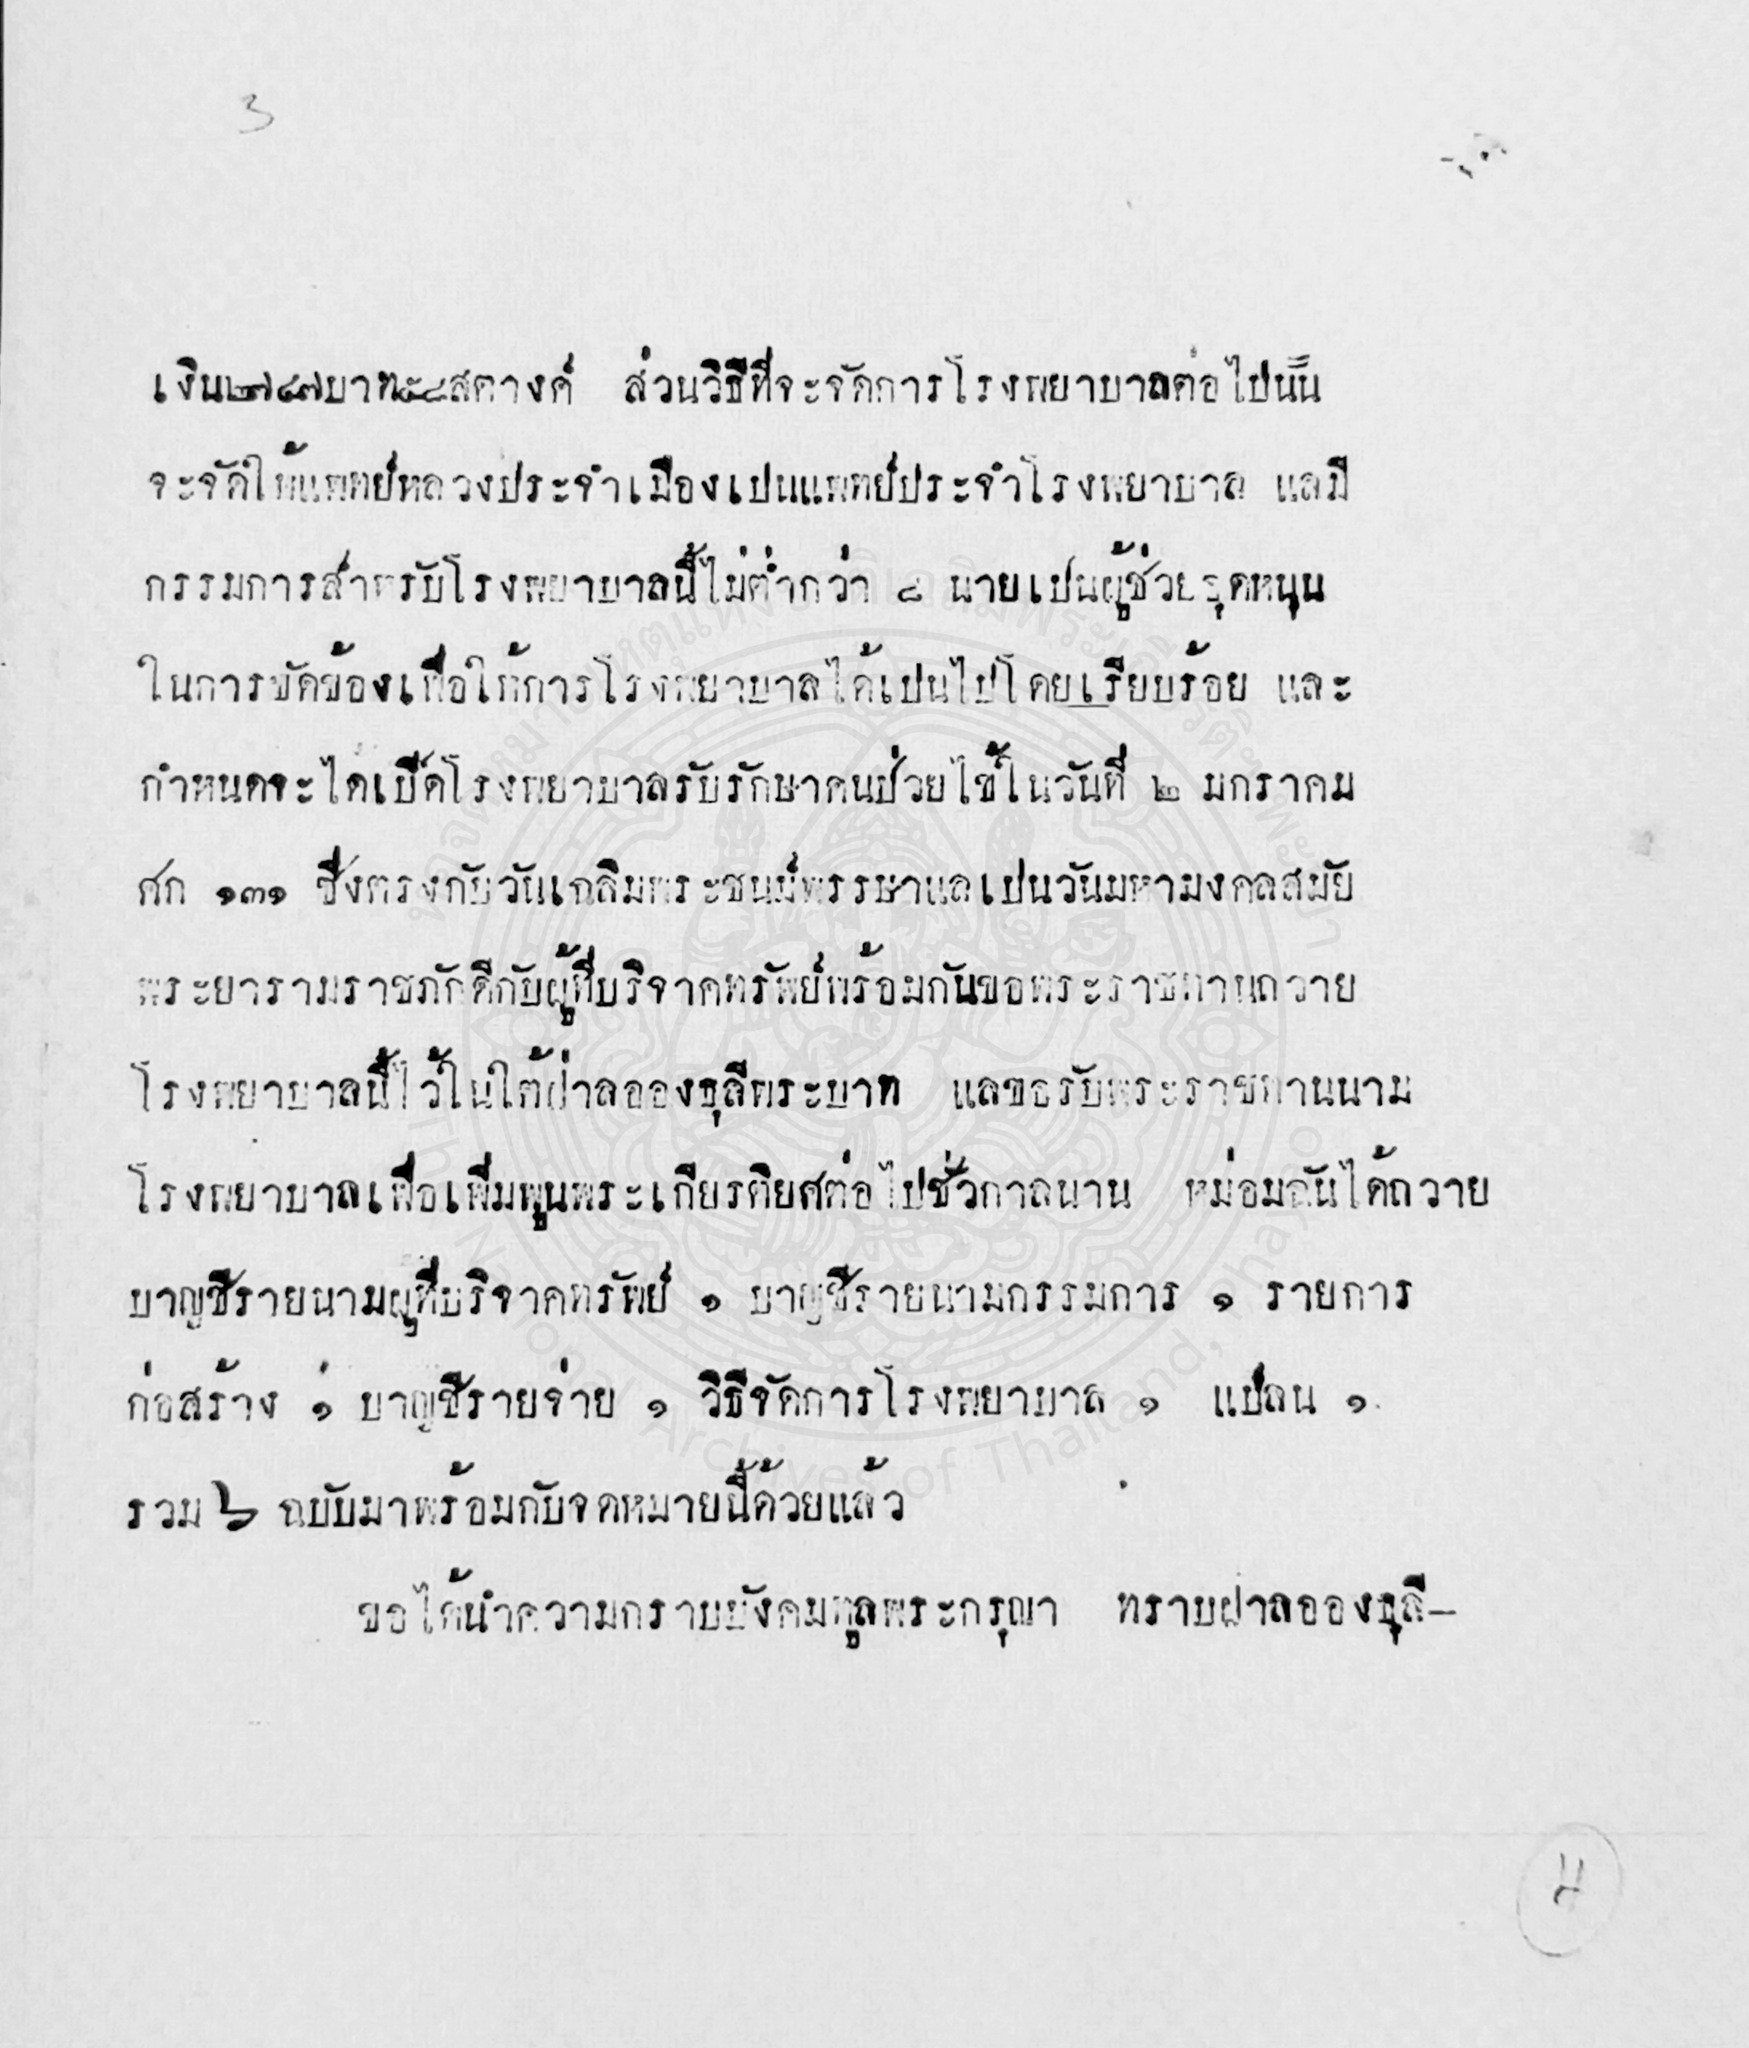 3
เงิน๒๗๔๗บาท๕๔สตางค์ ส่วนวิธีที่จะจัดการโรงพยาบาลต่อไปนั้น
จะจัดให้แพทย์หลวงประจำเมืองเปนแพทย์ประจำโรงพยาบาล แลมี
กรรมการสำหรับโรงพยาบาลนี้ไม่ต่ำกว่า ๔ นายเปนผู้ช่วยอุดหนุน
ในการขัดข้องเพื่อให้การโรงพยาบาลได้เปนไปโดยเรียบร้อย และ
กำหนดจะได้เปิดโรงพยาบาลรับรักษาคนป่วยไข้ในวันที่ ๒ มกราคม
ศก ๑๓๑ ซึ่งตรงกับวันเฉลิมพระชนม์พรรษาแลเปนวันมหามงคลสมัย
พระยารามราชภักดีกับผู้ที่บริจาคทรัพย์พร้อมกันขอพระราชทานถวาย
โรงพยาบาลนี้ไว้ในใต้ฝ่าลอองธุลีพระบาท แลขอรับพระราชทานนาม
โรงพยาบาลเพื่อเพิ่มพูนพระเกียรติยศต่อไปชั่วกาลนาน หม่อมฉันได้ถวาย
บาญชีรายนามผู้ที่บริจาคทรัพย์ ๑ บาญชีรายนามกรรมการ ๑ รายการ
ก่อสร้าง ๑ บาญชีรายจ่าย ๑ วิธีจัดการโรงพยาบาล ๑ แปลน ๑
รวม ๖ ฉบับมาพร้อมกับจดหมายนี้ด้วยแล้ว
ขอได้นำความกราบบังคมทูลพระกรุณา ทราบฝ่าลอองธุลี—
หอจดหมายเหตุแห่งชาติเฉลิมพระเกียรติฯ พะเยา
The National Archives of Thailand, Phayao